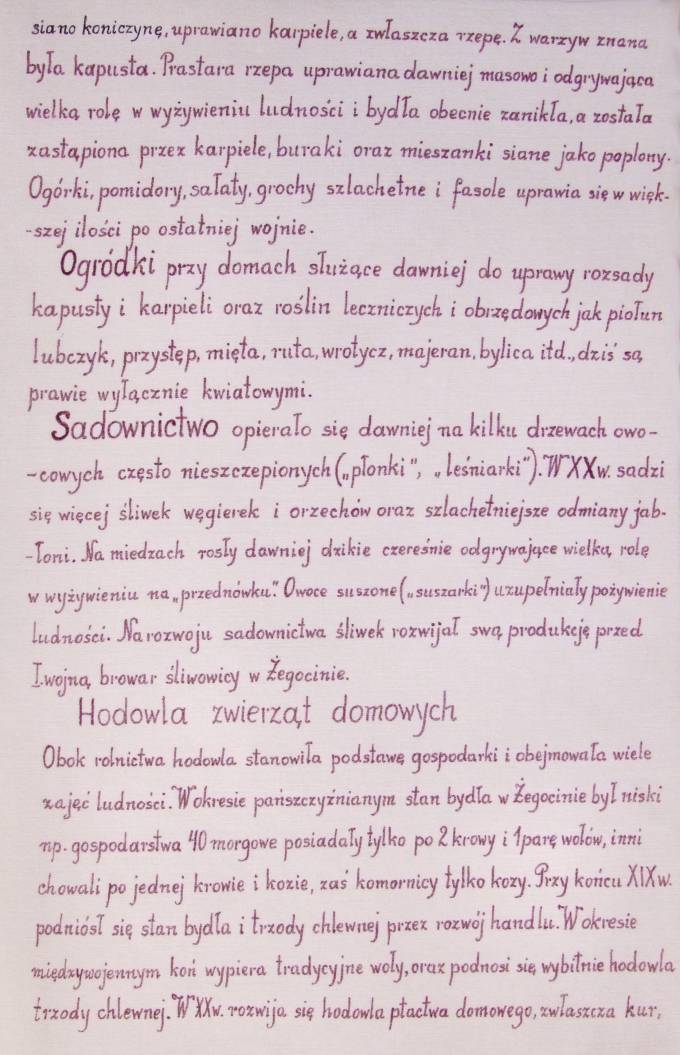 siano koniczynę, uprawiano karpiele, a zwłaszcza rzepę. Z warzyw znana
była kapusta. Prastara rzepa uprawiana dawniej masowo i odgrywająca
wielką rolę w wyżywieniu ludności i bydła obecnie zanikła, a została
zastąpiona przez karpiele, buraki oraz mieszanki siane jako poplony.
Ogórki, pomidory, sałaty, grochy szlachetne i fasole uprawia się w więk-
-szej ilości po ostatniej wojnie.
Ogródki przy domach służące dawniej do uprawy rozsady
kapusty i karpieli oraz roślin leczniczych i obrzędowych jak piołun
lubczyk, przystęp, mięta, ruta, wrotycz, majeran, bylica itd., dziś są
prawie wyłącznie kwiatowymi.
Sadownictwo opierało się dawniej na kilku drzewach owo-
-cowych często nieszczepionych („płonki", „leśniarki"). W XX w. sadzi
się więcej śliwek węgierek i orzechów oraz szlachetniejsze odmiany jab-
-łoni. Na miedzach rosły dawniej dzikie czereśnie odgrywające wielką rolę
w wyżywieniu na „przednówku". Owoce suszone („suszarki") uzupełniały pożywienie
ludności. Na rozwoju sadownictwa śliwek rozwijał swą produkcję przed
I. wojną browar śliwowicy w Żegocinie.
Hodowla zwierząt domowych
Obok rolnictwa hodowla stanowiła podstawę gospodarki i obejmowała wiele
zajęć ludności. W okresie pańszczyźnianym stan bydła w Żegocinie był niski
np. gospodarstwa 40 morgowe posiadały tylko po 2 krowy i 1 parę wołów, inni
chowali po jednej krowie i kozie, zaś komornicy tylko kozy. Przy końcu XIX w.
podniósł się stan bydła i trzody chlewnej przez rozwój handlu. W okresie
międzywojennym koń wypiera tradycyjne woły, oraz podnosi się wybitnie hodowla
trzody chlewnej. W XX w. rozwija się hodowla ptactwa domowego, zwłaszcza kur,